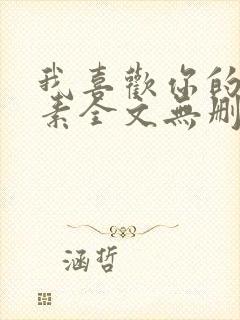 我喜歡你的
素全文無刪
涵哲